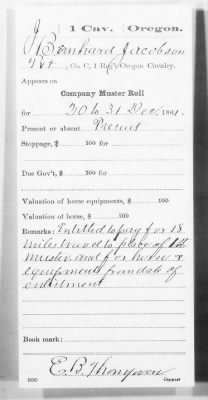 J | 1 Cav. | Oregon.
Bernhard Jacobson
Pvt., Co. C, 1 Reg't Oregon Cavalry.
Appears on
Company Muster Roll
for 20 to 31 Dec, 1861.
Present or absent Present
Stoppage, $ 100 for
Due Gov't, $ 100 for
Valuation of horse equipments, $ 100
Valuation of horse, $ 100
Remarks: Entitled to pay for 18
miles travel to place of 1st
muster and for horse &
equipments from date of
enrolment
Book mark:
E. B. Thompson
Copyist